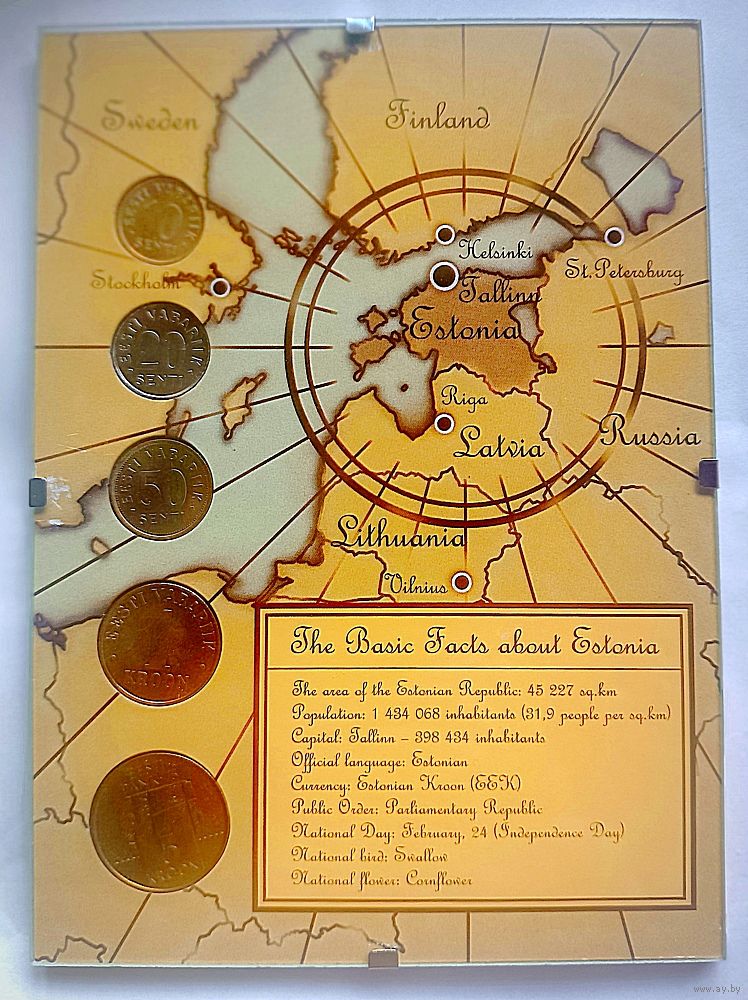 Sweden
Finland
EESTI VABARIIK
10
SENTI
Helsinki
St. Petersburg
Stockholm
Tallinn
Estonia
EESTI VABARIIK
20
SENTI
Riga
Latvia
Russia
EESTI VABARIIK
50
SENTI
Lithuania
Vilnius
EESTI VABARIIK
KROON
The Basic Facts about Estonia
The area of the Estonian Republic: 45 227 sq.km
Population: 1 434 068 inhabitants (31,9 people per sq.km)
Capital: Tallinn – 398 434 inhabitants
Official language: Estonian
Currency: Estonian Kroon (EEK)
Public Order: Parliamentary Republic
National Day: February, 24 (Independence Day)
National bird: Swallow
National flower: Cornflower
5
KROONI
www.ay.by